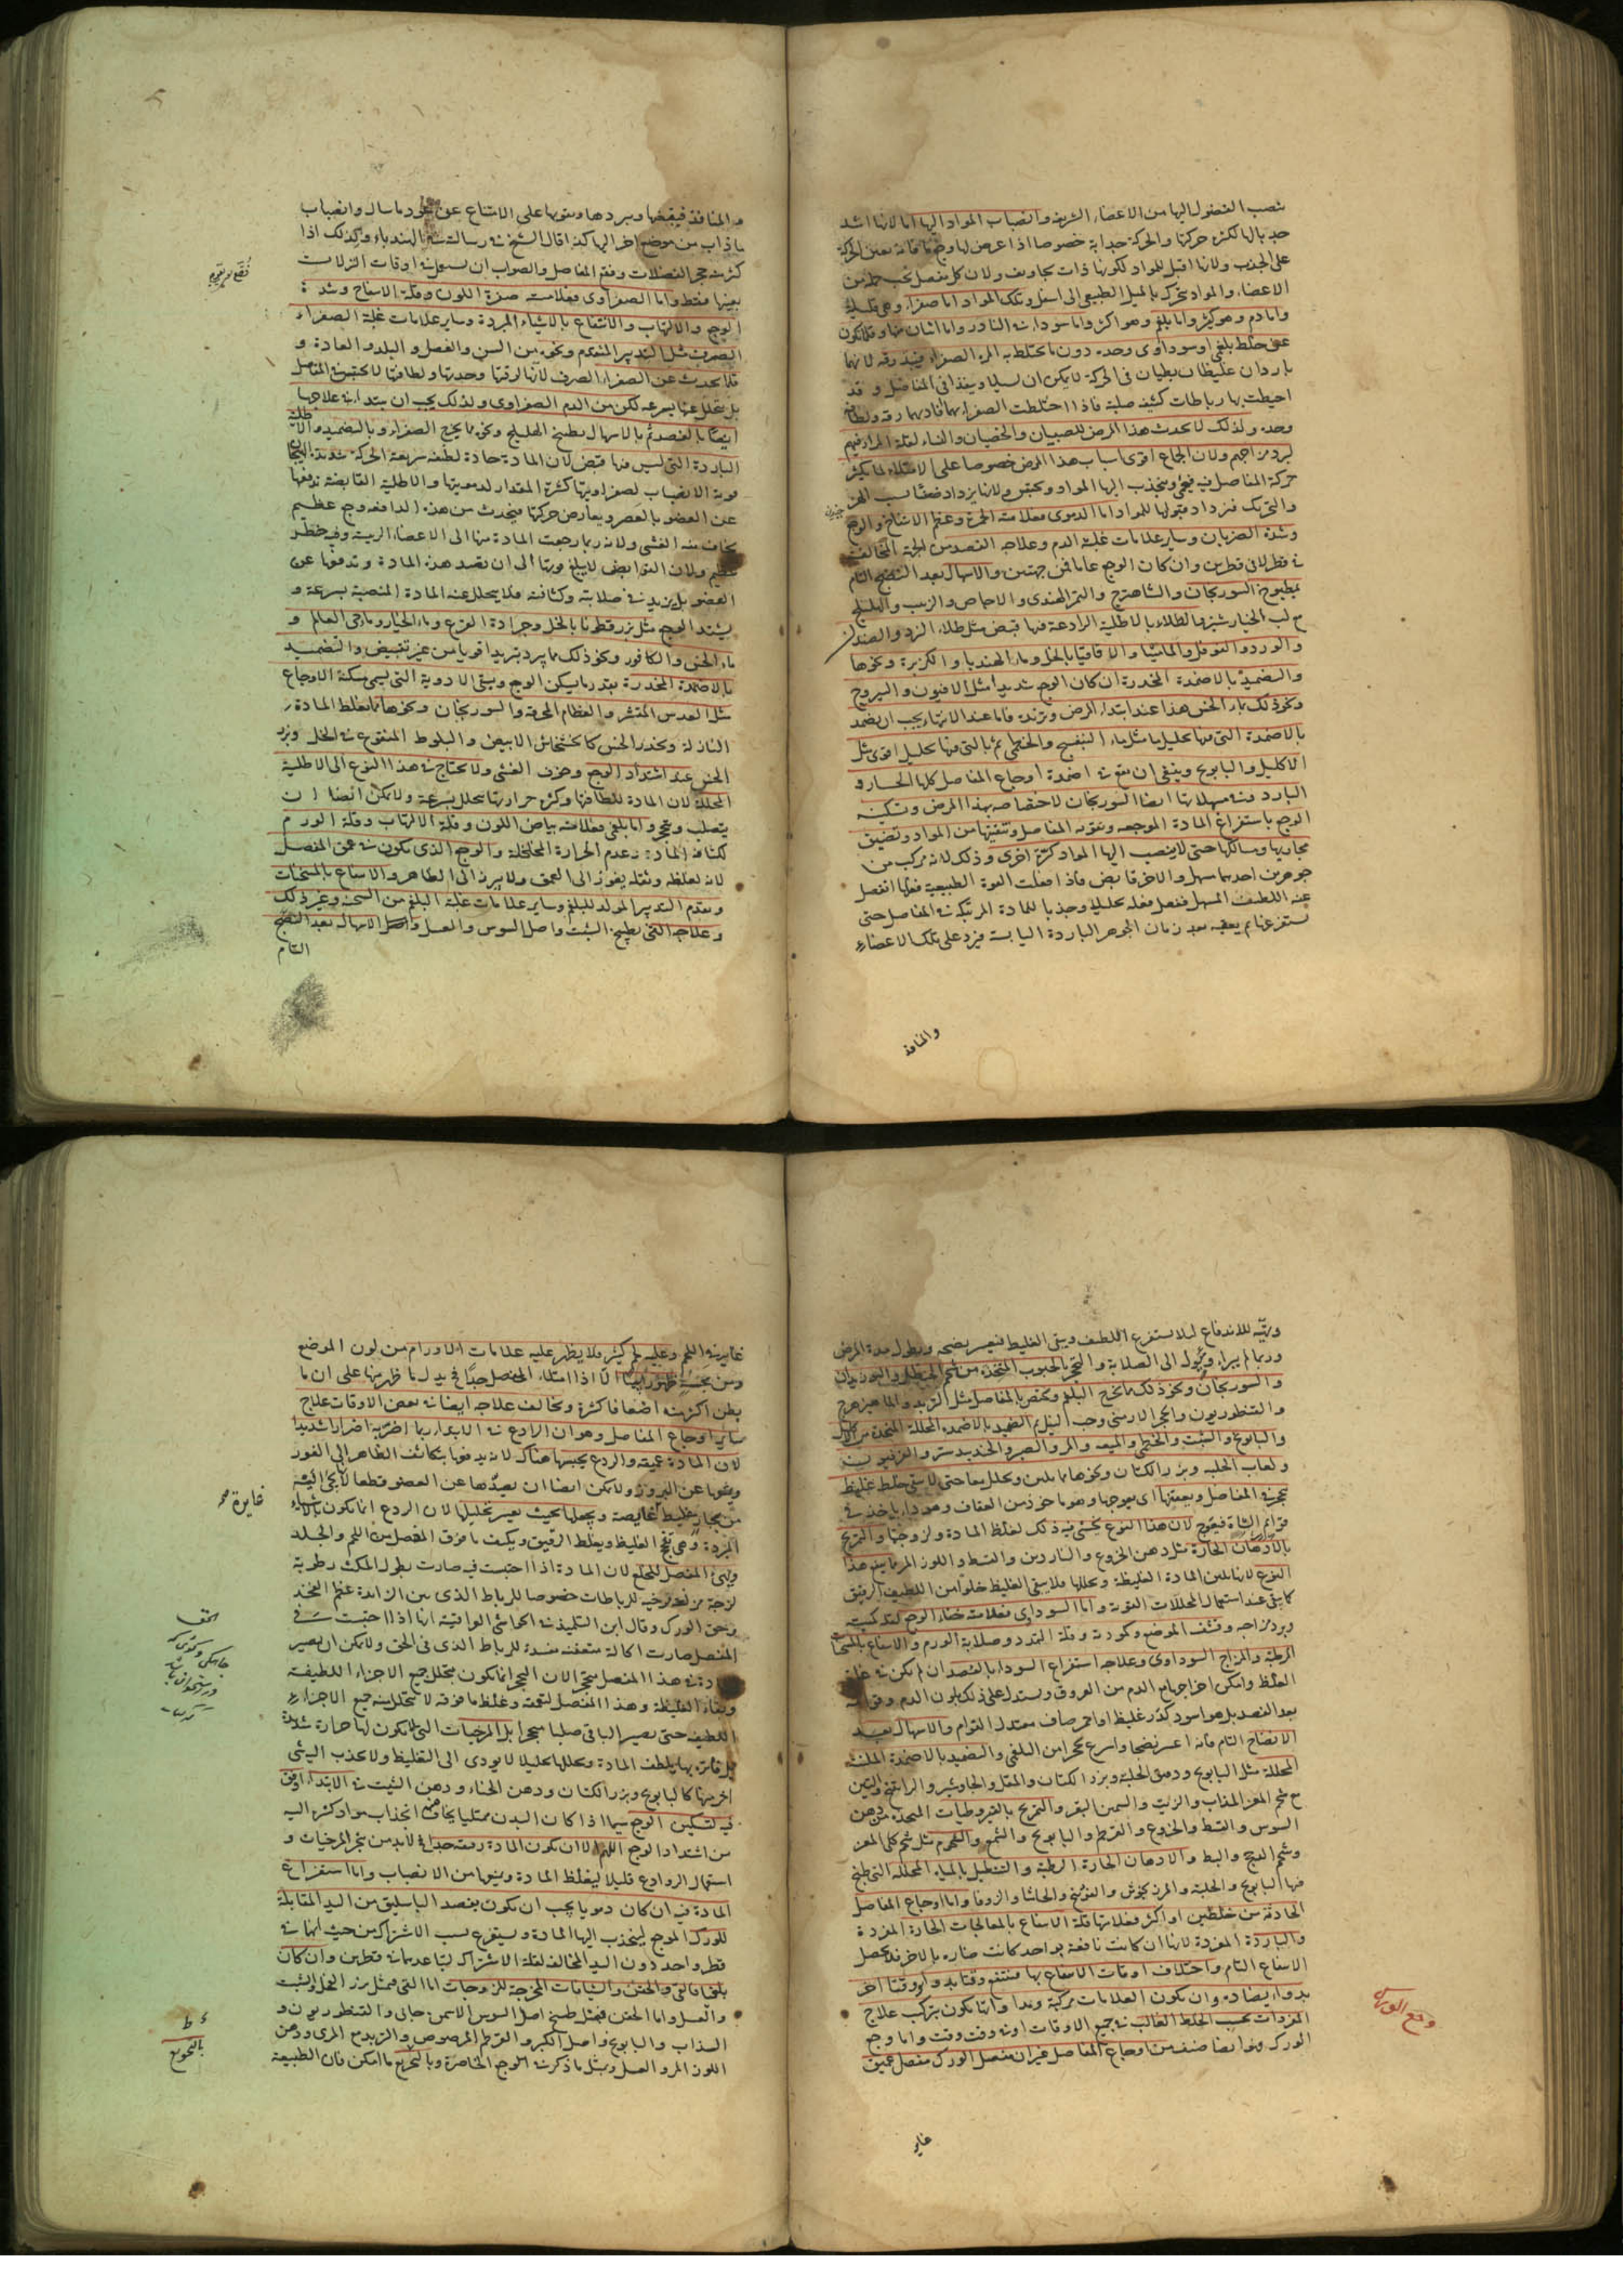 تنصب الفضول اليها من الاعضاء الشريفة وانصباب المواد اليها اما لانها اشد
جذبا لها لكثرة حركتها والحركة جذابة خصوصا اذا عرض لها وجع فانه يعين الحركة
على الجذب ولانها اقبل للمواد لكونها ذات تجاويف ولان كل مفصل تحت جملة من
الاعضاء والمواد تتحرك بالميل الطبيعى الى اسفل وتلك المواد اما صفراء وهى قليلة
واما دم وهو كثير واما بلغم وهو اكثر واما سوداء فى النادر واما اثنان منها وقلما تكون
عن خلط بلغمى او سوداوى وحده دون ما يختلط به المرة الصفراء فيبذرقه لانهما
باردان غليظان بطيان فى الحركة لا يمكن ان يسيلا وينفذا فى المفاصل وقد
احيطت بها رباطات كثيفة صلبة فاذا اختلطت الصفراء بهما افادتهما رقة ولطافة
وحدة ولذلك لا يحدث هذا المرض للصبيان والخصيان والنساء لقلة المرار فيهم
لبرد مزاجهم ولان الجماع اقوى اسباب هذا المرض خصوصا على الامتلاء لما يكثر
حركة المفاصل فيه فيعيى وينجذب اليها المواد وتحتبس ولانها يزداد ضعفا بسبب الهز
والتحريك فيزداد قبولها للمواد اما الدموى فعلامته الحمرة وعظم الانتفاخ والوجع
وشدة الضربان وساير علامات غلبة الدم وعلاجه الفصد من الجهة المخالفة
فى قطر لا فى قطرين وان كان الوجع عاما فمن جهتين والاسهال بعد النضج التام
بمطبوخ السورنجان والشاهترج والتمر الهندى والاجاص والزبيب والهليلج
مع لب الخيار شنبر والطلاء بالاطلية الرادعة فيها قبض مثل طلاء الزرد والصندل
والورد والفوفل والماميثا والاقاقيا بالخل وماء الهندبا والكزبرة ونحوها
والتضميد بالاضمدة المخدرة ان كان الوجع شديدا مثل الافيون واليبروح
ونحو ذلك بماء الخس هذا عند ابتداء المرض وتزيده فاما عند الانتهاء يجب ان يضمد
بالاضمدة التى فيها تحليل ما مثل ماء البنفسج والخطمى ثم بالتى فيها تحليل اقوى مثل
الاكليل والبابونج وينبغى ان يقع فى اضمدة اوجاع المفاصل كلها الحارة و
الباردة وفى مسهلاتها ايضا السورنجان لاختصاصه بهذا المرض وتسكينه
الوجع باستفراغ المادة الموجعة وتقويه المفاصل وتنقيتها من المواد وتضييق
مجاريها ومسالكها حتى لا ينصب اليها المواد كرة اخرى وذلك لانه مركب من
جوهرين احدهما مسهل والاخر قابض فاذا فعلت القوة الطبيعية فعلها انفصل
عنه اللطيف المسهل ففعل فعله تحليلا وجذبا للمادة المرتبكة فى المفاصل حتى
تستفرغها ثم يعقبه بعد زمان الجوهر الباردة اليابسة فيرد على تلك الاعضاء
والمنافذ
والمنافذ فيقبضها ويبردها ويقويها على الامتناع عن عود ما سال وانصباب
ما ذاب من موضع اخر اليها كذا قال الشيخ فى رسالته فى الهندباء وكذلك اذا
بعينها فقط واما الصفراوى فعلامته صفرة اللون وقلة الانتفاخ وشدة
الوجع والالتهاب والانتفاع بالاشياء المبردة وساير علامات غلبة الصفراء
الصرف مثل التدبير المتقدم ونحوه من السن والفصل والبلد والعادة و
قلما يحدث عن الصفراء الصرف لانها لرقتها وحدتها ولطافتها لا تحتبس فى المفاصل
بل يتحلل عنها بسرعة لكن من الدم الصفراوى ولذلك يجب ان يبتدا فى علاجها
ايضا بالفصد ثم بالاسهال بطبيخ الهليلج ونحوه مما يخرج الصفراء وبالتضميد والاطلية
الباردة التى ليس فيها قبض لان المادة حادة لطيفة سريعة الحركة شديدة الهيجان
قوية الانصباب لصفراويتها كثرة المقدار لدمويتها والاطلية القابضة تدفعها
عن العضو بالعصر ويعارض حركتها فيحدث من هذه المدافعة وجع عظيم
يخاف منه الغشى ولانه ربما رجعت المادة منها الى الاعضاء الرئيسة وفيه خطر
عظيم ولان القوابض لا يبلغ قوتها الى ان تصد هذه المادة وتدفعها عن
العضو بل يزيد فى صلابته وكثافته فلا يتحلل عنه المادة المنصبة بسرعة و
يشتد الوجع مثل بزر قطونا بالخل وجرادة القرع وماء الخيار وماء حى العالم و
ماء الخس والكافور ونحو ذلك مما يبرد تبريدا قويا من غير تقبيض والتضميد
بالاضمدة المخدرة بقدر ما يسكن الوجع ويسقى الادوية التى تسمى مسكنة الاوجاع
مثل العدس المقشر والعظام المحرقة والسورنجان ونحوها مما يغلظ المادة
النازلة ويخدر الحس كالخشخاش الابيض والبلوط المنقوع فى الخل وبزر
الخس عند اشتداد الوجع وخوف الغشى ولا يحتاج فى هذا النوع الى الاطلية
المحللة لان المادة للطافتها وكثرة حرارتها يتحلل بسرعة ولا يمكن ايضا ان
يتصلب ويتحجر واما بلغمى فعلامته بياض اللون وقلة الالتهاب وقلة الورم
لكثافة المادة وعدم الحرارة المخلخلة والوجع الذى يكون فى عمق المفصل
لانه لغلظه وثقله يغوز الى العمق ولا يبرز الى الظاهر والانتفاع بالمسخنات
وتقدم التدبير المولد للبلغم وساير علامات غلبة البلغم من السحنة وغير ذلك
وعلاجه القى بطبيخ الشبت واصل السوس والعسل واصل الاسهال بعد النضج
التام
وتهيئه للاندفاع لئلا يستفرغ اللطيف ويبقى الغليظ فيعسر نضجه ويطول مدة المرض
وربما لم يبرأ ويؤول الى الصلابة والتحجر بالحبوب المتخذة من شحم الحنظل والبوزيدان
والسورنجان ونحو ذلك مما يخرج البلغم ويختص بالمفاصل مثل التربد والماهيزهرج
والقنطوريون والحجر الارمنى وحب النيل ثم التضميد بالاضمدة المحللة المتخذة من الاكليل
والبابونج والشبت والخطمى والميعة والمر والصبر والجندبيدستر والفرفيون
ولعاب الحلبة وبزر الكتان ونحوها مما يلين ويحلل معا حتى لا يبقى خلط غليظ
قوائم الشاة فتعوج لان هذا النوع يخشى فيه ذلك لغلظ المادة ولزوجتها والتمريخ
بالادهان الحارة مثل دهن الخروع والناردين والقسط واللوز المر فانه هذا
النوع لانها تلين المادة الغليظة وتحللها فلا يبقى الغليظ خلوا من اللطيف الرقيق
كما يبقى عند استعمال المحللات القوية واما السوداوى فعلامته خفاء الوجع لقلة كميته
وبرد مزاجه وقشف الموضع وكمودته وقلة التمدد وصلابة الورم والانتفاع بالمسخنات
المرطبة والمزاج السوداوى وعلاجه استفراغ السوداء بالفصد ان لم يكن فى غاية
الغلظ وامكن اخراجها مع الدم من العروق ويستدل على ذلك بلون الدم وقوامه
بعد الفصد بل هو اسود كدر غليظ او احمر صاف معتدل القوام والاسهال بعد
الانضاج التام فانه اعسر نضجا واسرع تحجرا من البلغمى والتضميد بالاضمدة الملينة
المحللة مثل البابونج ودقيق الحلبة وبزر الكتان والمقل والجاوشير والراتينج والتين
مع شحم المعز المذاب والزيت والسمن البقر والتمريخ بالقيروطيات المتخذة من دهن
السوس والقسط والخروع والقرطم والبابونج والشمع والشحوم مثل شحم كلى المعز
وشحم الدجاج والبط والادهان الحارة الرطبة والتنطيل بالمياه المحللة التى طبخ
فيها البابونج والحلبة والمرزنجوش والفوتنج والحاشا والزوفا واما اوجاع المفاصل
الحادثة من خلطين او اكثر فعلامتها قلة الانتفاع بالمعالجات الحارة المفردة
والباردة المفردة لانها ان كانت نافعة بواحد كانت ضارة بالاخر فلا يحصل
الانتفاع التام واختلاف اوقات الانتفاع بها فينتفع وقتا بدواء ووقتا اخر
بدواء يضاده وان تكون العلامات مركبة وهذا وانما تكون بتركيب علاج
المفردات بحسب الخلط الغالب فى جميع الاوقات او فى وقت وقت واما وجع
الورك وهو ايضا صنف من اوجاع المفاصل غير ان مفصل الورك مفصل عميق
وجع الورك
غاير
غاير فى اللحم وعليه لحم كثير فلا يظهر عليه علامات الاورام من لون الموضع
بطن اكثر منه اضعافا كثيرة ويخالف علاجه ايضا فى بعض الاوقات علاج
ساير اوجاع المفاصل وهو ان الرادع فى الابتداء ربما اضر به اضرارا شديدا
لان المادة عميقة والردع يحبسها هناك لانه يدفعها بتكاثف الظاهر الى الغور
ويمنعها عن البروز ولا يمكن ايضا ان يصدها عن العضو قطعا لانها تجئ اليه
من مجار غليظة غايصة ويجعلها بحيث يعسر تحليلها لان الردع انما يكون بالاشياء
المبردة وهى تفجج الغليظ ويغلظ الرقيق ويكثف ما فوق المفصل من اللحم والجلد
ويهئ المفصل للتخلع لان المادة اذا احتبست فيه صارت بطول المكث رطوبة
لزجة مزلقة مرخية للرباطات خصوصا للرباط الذى بين الزايدة عظم الفخذ
وحق الورك وقال ابن التلميذ فى الحواشى الواقية انها اذا احتبست فى
المفصل صارت اكالة متعفنة مفسدة للرباط الذى فى الحق ولا يمكن ان يصير
المادة فى هذا المفصل متحجرا لان التحجر انما يكون بتحلل جميع الاجزاء اللطيفة
وبقاء الغليظة وهذا المفصل لعمقه وغلظ ما فوقه لا يتحلل منه جميع الاجزاء
اللطيفة حتى يصير الباقى صلبا متحجرا بل المرخيات التى لا يكون لها حرارة شديدة
بل فاترة بها يلطف المادة ويحللها تحليلا لا يودى الى التغليظ ولا يجذب اليه شئ
اخر منها كالبابونج وبزر الكتان ودهن الحناء ودهن الشبت فى الابتداء اوفق
فيه لتسكين الوجع سيما اذا كان البدن ممتليا يخاف منه انجذاب مواد كثيرة اليه
من اشتداد الوجع اللهم الا ان يكون المادة رقيقة جدا فلا بد من هجر المرخيات و
استعمال الروادع قليلا ليغلظ المادة ويمنعها من الانصباب واما استفراغ
المادة فيه ان كان دمويا يجب ان يكون بفصد الباسليق من اليد المقابلة
للورك الموجع لينجذب اليها المادة ويستفرغ بسبب الاشتراك من حيث انهما فى
قطر واحد دون اليد المخالفة لقلة الاشتراك لتباعدهما فى قطرين وان كان
بلغميا فالقى والحقن والشيافات المخرجة للزوجات اما القى فبمثل بزر الفجل والشبت
والعسل واما الحقن فبمثل طبيخ اصل السوس الاسمانجونى والقنطوريون و
السذاب والبابونج واصل الكبر والقرطم المرضوض والزبد مع المرى ودهن
اللوز المر والعسل وبمثل ما ذكر فى وجع الخاصرة وبالتجويع ما امكن فان الطبيعة
غايرة
بالتجويع